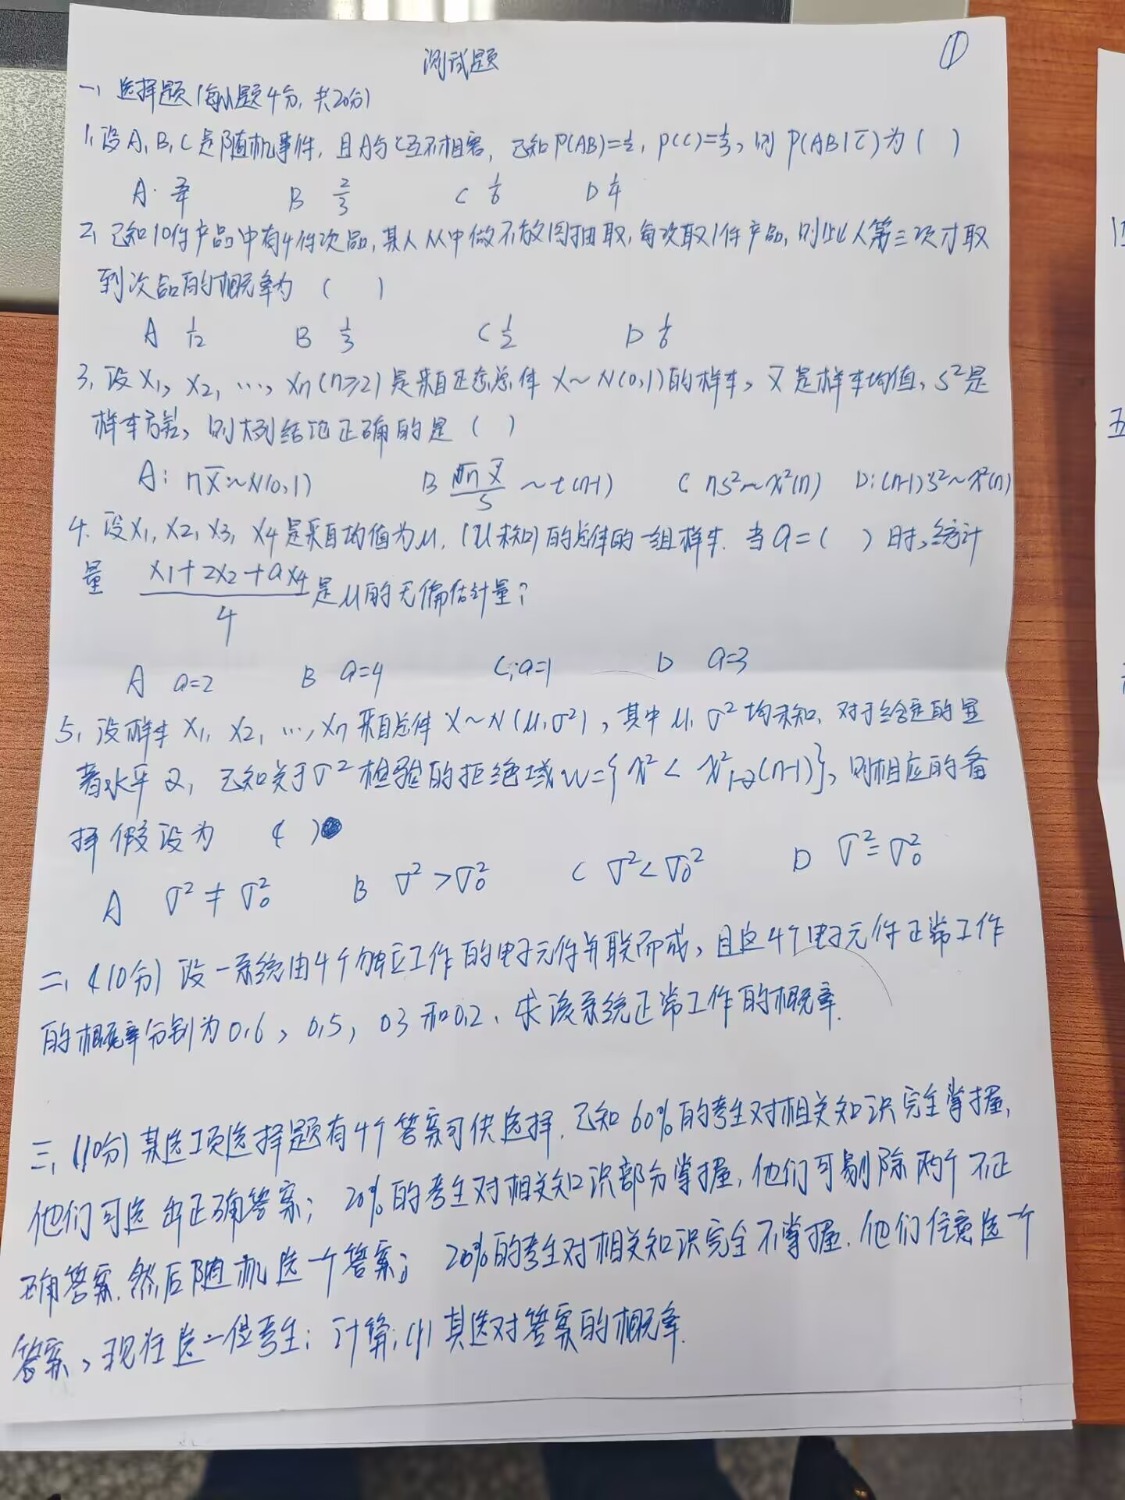 测试题
①
一、选择题(每小题4分,共20分)
1、设A,B,C是随机事件,且A与C互不相容,已知P(AB)=½,P(C)=⅓,则P(AB|C̄)为( )
A. ¾ B ⅔ C ⅙ D ¼
2、已知10件产品中有4件次品,某人从中做不放回抽取,每次取1件产品,则此人第三次才取
到次品的概率为( )
A 1/12 B ⅓ C ½ D ⅙
3、设X₁,X₂,…,Xn(n≥2)是来自正态总体X~N(0,1)的样本,X̄是样本均值,S²是
样本方差,则下列结论正确的是( )
A: nX̄~N(0,1) B √n X̄/S ~t(n-1) C nS²~χ²(n) D:(n-1)S²~χ²(n)
4. 设X₁,X₂,X₃,X₄是来自均值为μ,(μ未知)的总体的一组样本.当a=( )时,统计
量 (X₁+2X₂+aX₄)/4 是μ的无偏估计量?
A a=2 B a=4 C,a=1 D a=3
5、设样本X₁,X₂,…,Xn来自总体X~N(μ,σ²),其中μ,σ²均未知.对于给定的显
著水平α,已知关于σ²检验的拒绝域W={χ²<χ²₁₋α(n-1)},则相应的备
择假设为( )
A σ²≠σ₀² B σ²>σ₀² C σ²<σ₀² D σ²=σ₀²
二、(10分)设一系统由4个独立工作的电子元件并联而成,且这4个电子元件正常工作
的概率分别为0.6,0.5,0.3和0.2.求该系统正常工作的概率.
三、(10分)某选项选择题有4个答案可供选择.已知60%的考生对相关知识完全掌握,
他们可选出正确答案;20%的考生对相关知识部分掌握,他们可剔除两个不正
确答案.然后随机选一个答案;20%的考生对相关知识完全不掌握.他们任意选一个
答案,现任选一位考生;计算;(1)其选对答案的概率.
五